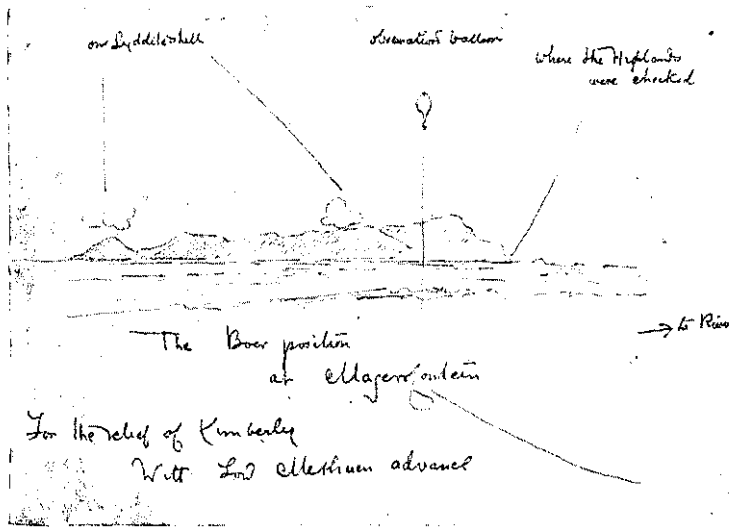 our Lyddite shell
observation balloon
where the Highlands
were checked
The Boer position
→ to River
at Magersfontein
For the relief of Kimberley
With Lord Methuen advance